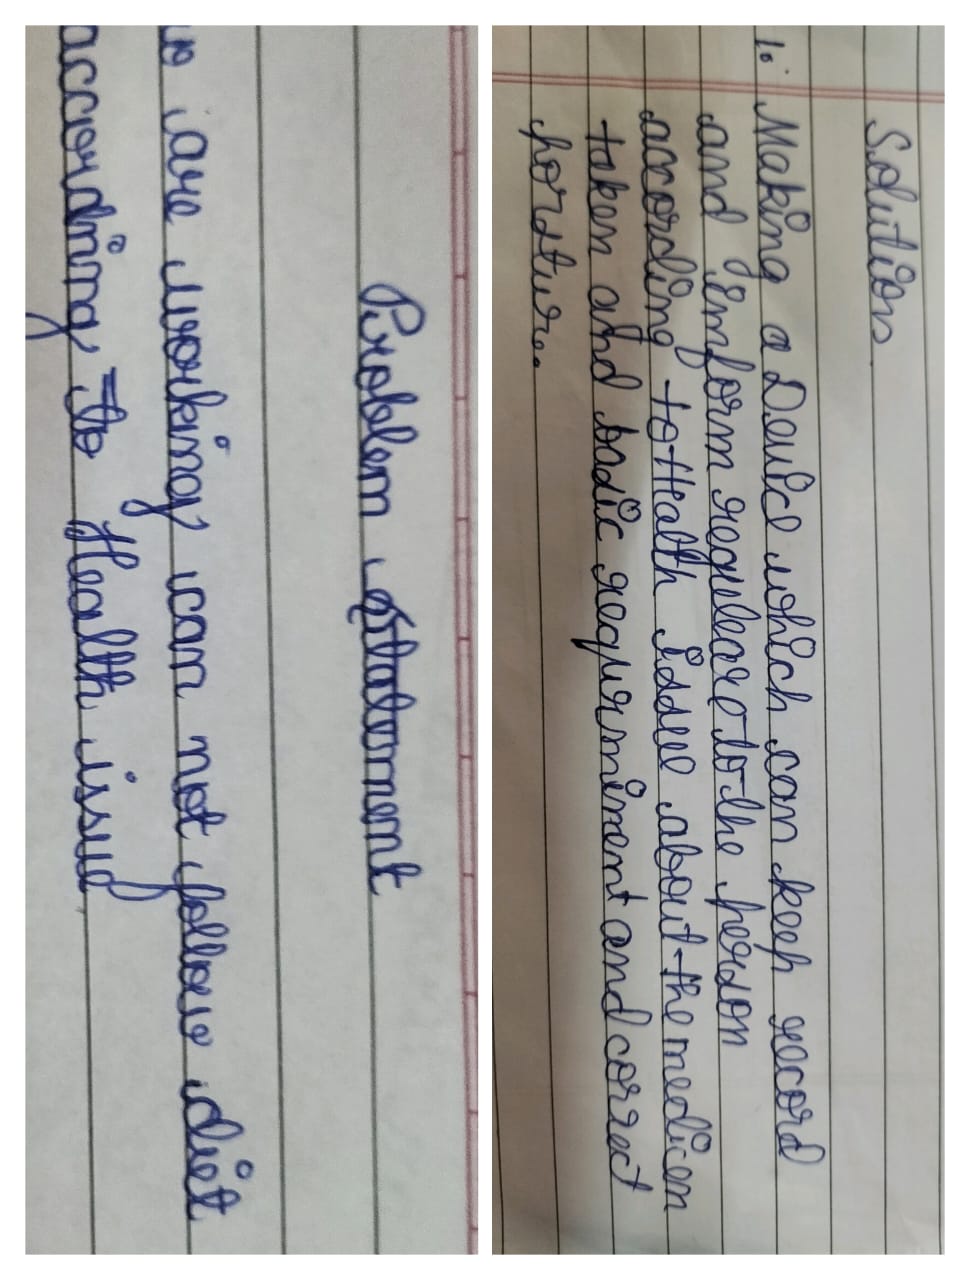 Problem statement
are working can not follow diet
according to Health issue
Solutions.
1. Making a Device which can keep record
and imform reguleare to the person
according to Health issue about the medicen
taken and badic requirminent and correct
porsture..